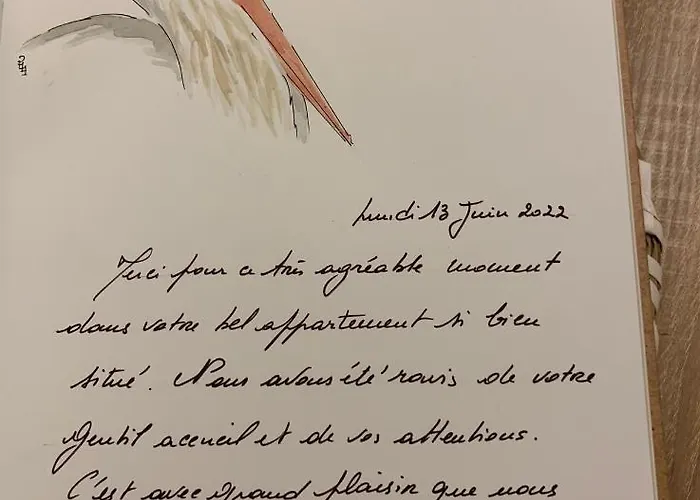 Lundi 13 Juin 2022
Merci pour ce très agréable moment
dans votre bel appartement si bien
situé. Nous avons été ravis de votre
gentil accueil et de vos attentions.
C'est avec grand plaisir que nous